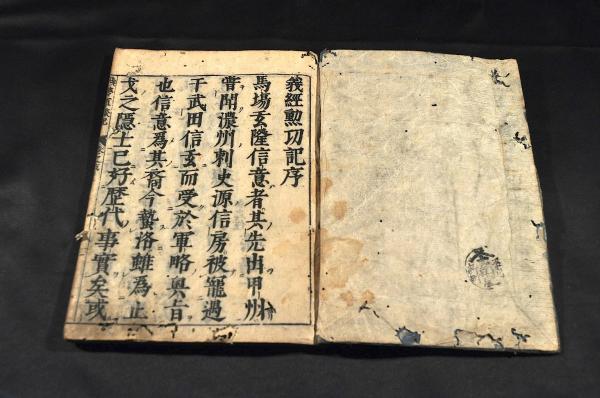 義經勲功記序
馬場玄隆信意者其先出甲州
嘗聞濃州刺史源信房被寵過
于武田信玄而受於軍略奥旨
也信意爲其裔今蟄洛雖為止
戈之隱士已好歴代事實矣或